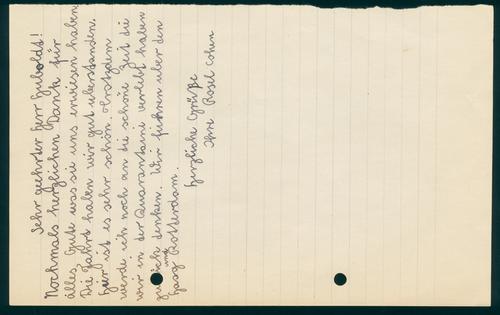 Sehr geehrter Herr Huboldt!
Nochmals herzlichen Dank für
alles, Gute was sie uns erwiesen haben
Die Fahrt haben wir gut überstanden.
Hier ist es sehr schön. Trotzdem
werde ich noch an die schöne Zeit die
wir in der Quarantaine verlebt haben
zurück denken. Wir fuhren über den
Haag und Rotterdam.
Herzliche Grüße
Ihre Rosel Cohen